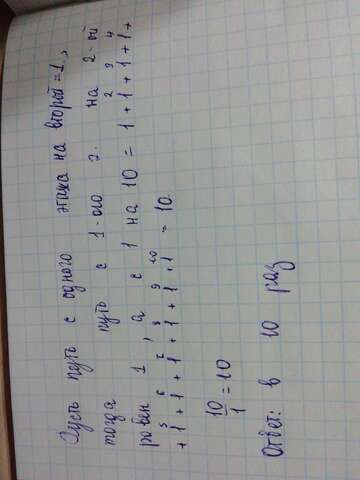 Пусть путь с одного этажа на второй = 1.,
тогда путь с 1-ого э. на 2-ой
2 3 4
равен 1, а с 1 на 10 = 1 + 1 + 1 + 1 +
5 6 7 8 9 10
+ 1 + 1 + 1 + 1 + 1 + 1 = 10.
10/1 = 10
Ответ: в 10 раз